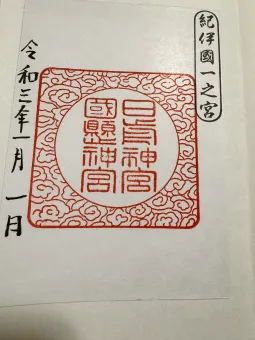 紀伊國一之宮
日前神宮
國懸神宮
令和三年一月一日